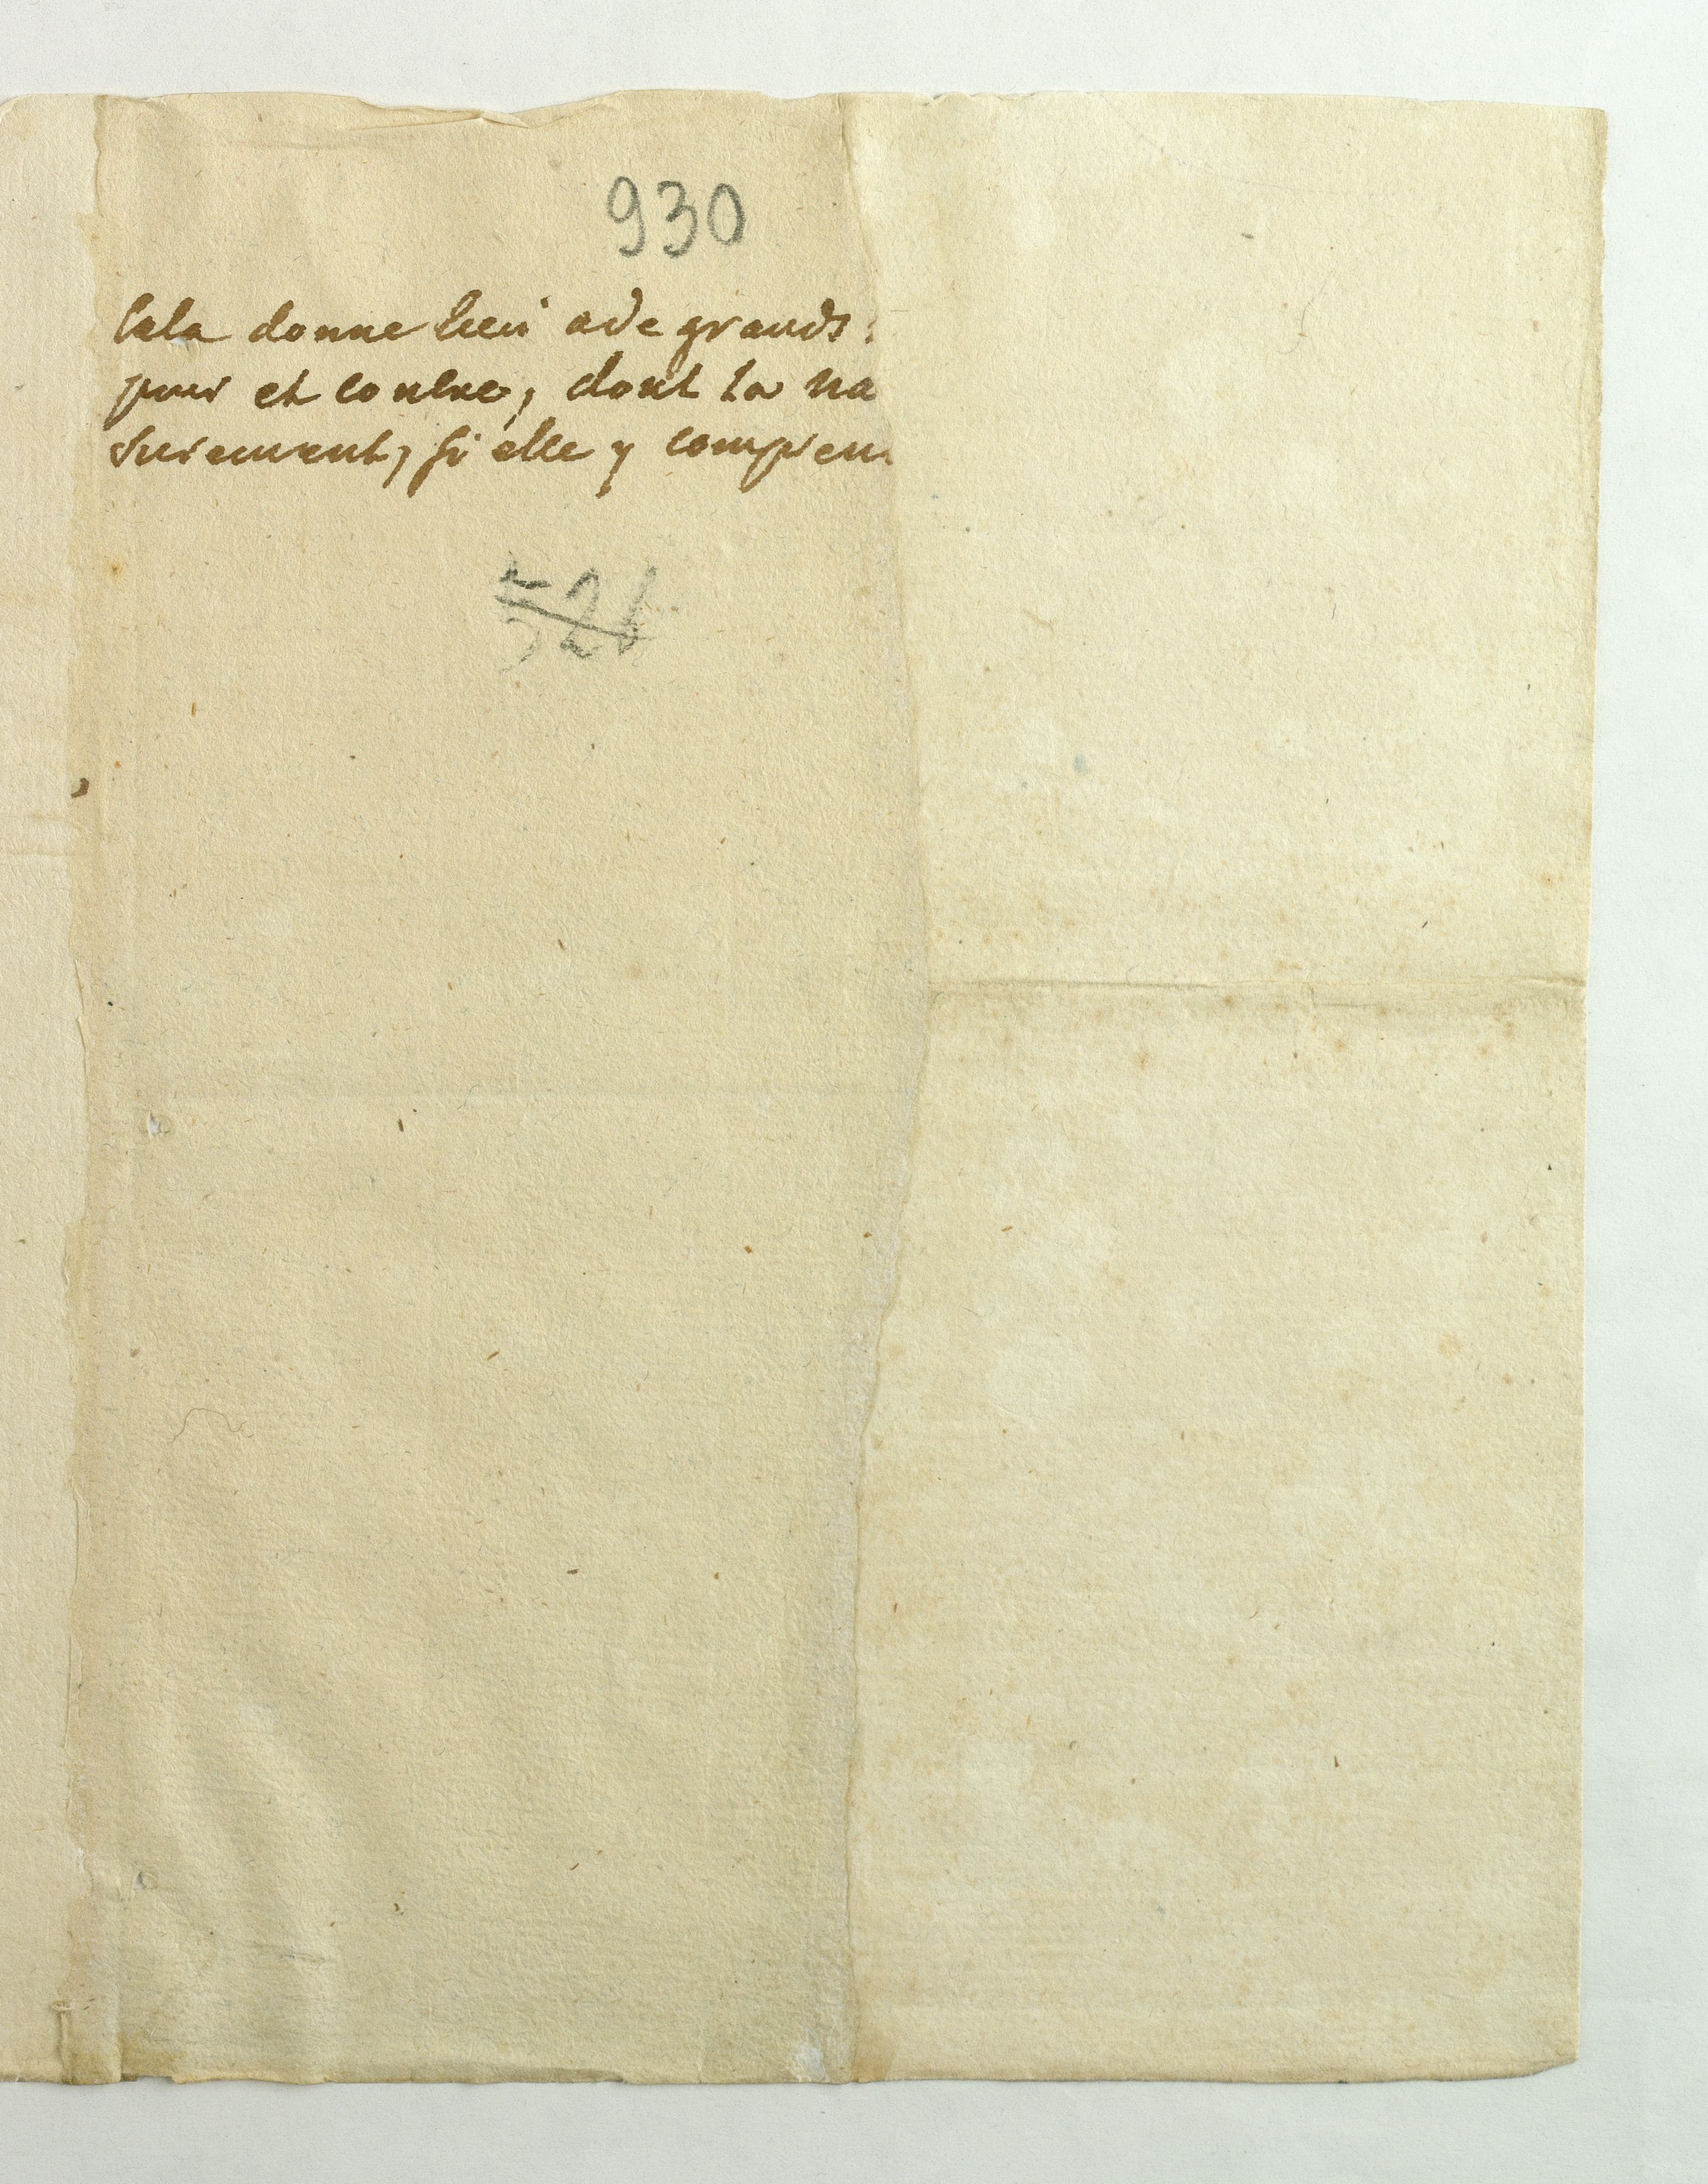 930
Cela donne lieu a de grands
pour et contre, dont la na
surement, si elle y compren
521